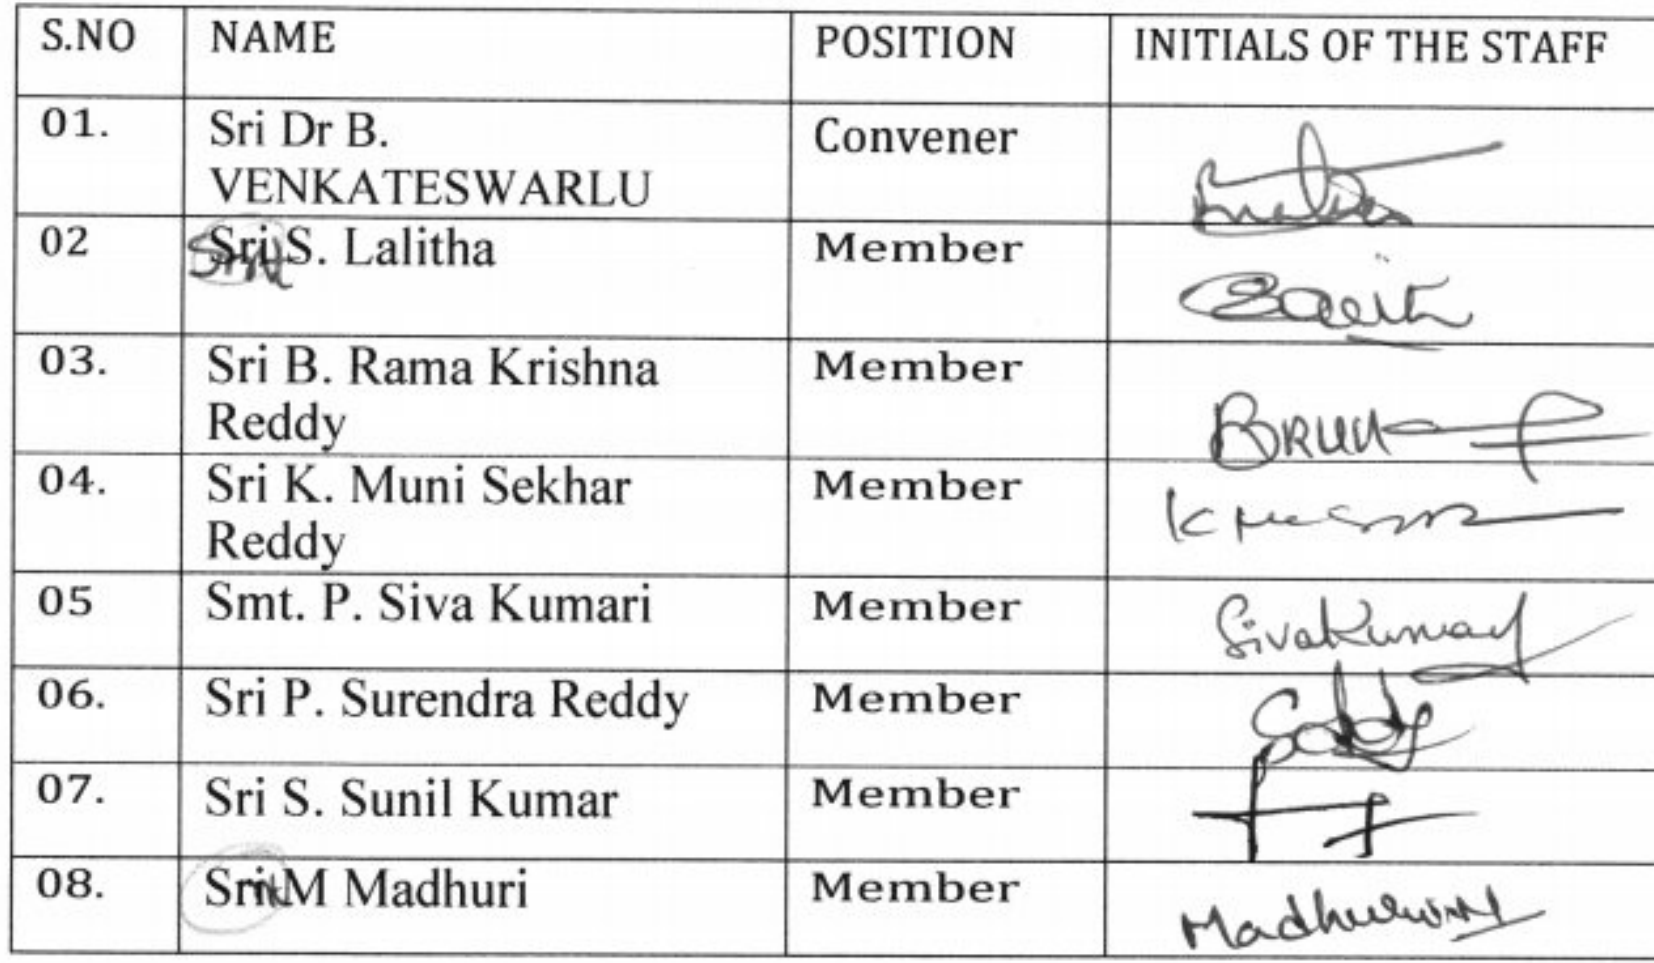 S.NO NAME POSITION INITIALS OF THE STAFF
01. Sri Dr B. Convener
VENKATESWARLU
02 Sri S. Lalitha Member
Smt
03. Sri B. Rama Krishna Member
Reddy
04. Sri K. Muni Sekhar Member
Reddy
05 Smt. P. Siva Kumari Member SivaKumari
06. Sri P. Surendra Reddy Member
07. Sri S. Sunil Kumar Member
08. Sri M Madhuri Member Madhuri